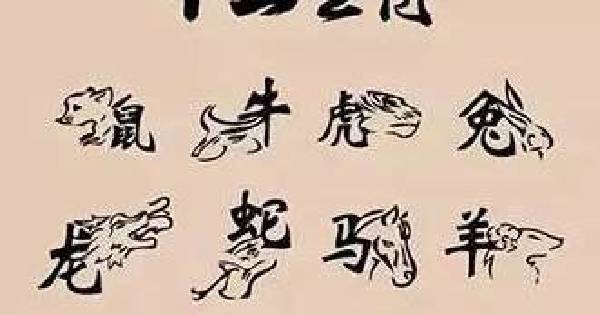 鼠 牛 虎 兔
龙 蛇 马 羊